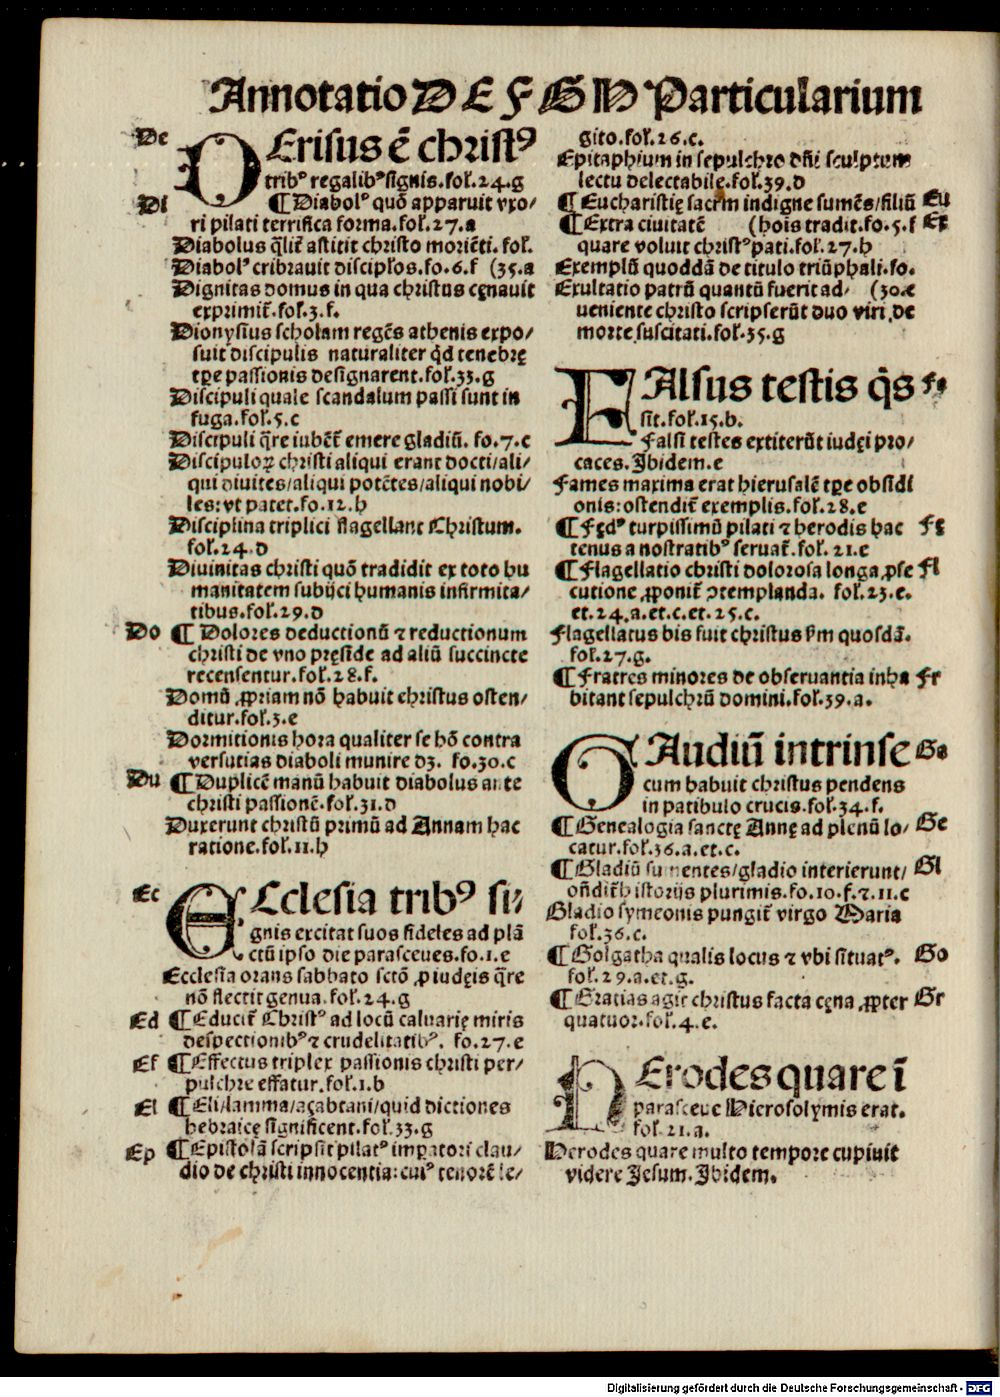 Annotatio D E F G H Particularium
De
DErisus ē christꝰ
tribꝰ regalibꝰ signis.fol.24.g
Di
¶ Diabolꝰ quō apparuit vxo/
ri pilati terrifica forma.fol.27.a
Diabolus q̄lit᷑ astitit christo moriēti. fol.
Diabolꝰ cribrauit discipl̄os.fo.6.f (35.a
Dignitas domus in qua christus cęnauit
exprimit᷑.fol.3.f.
Dionysius scholam regēs athenis expo/
suit discipulis naturaliter qd̄ tenebrę
tp̄e passionis designarent.fol.33.g
Discipuli quale scandalum passi sunt in
fuga.fol.5.c
Discipuli q̄re iubēt᷑ emere gladiū. fo.7.c
Discipuloꝝ christi aliqui erant docti/ali/
qui diuites/aliqui potētes/aliqui nobi/
les:vt patet.fo.12.h
Disciplina triplici flagellant Christum.
fol.24.d
Diuinitas christi quō tradidit ex toto hu
manitatem subijci humanis infirmita/
tibus.fol.29.d
Do ¶ Dolores deductionū ⁊ reductionum
christi de vno pręside ad aliū succincte
recensentur.fol.28.f.
Domū ꝓpriam nō habuit christus osten/
ditur.fol.3.e
Dormitionis hora qualiter se hō contra
versutias diaboli munire dꝫ. fo.30.c
Du ¶ Duplicē manū habuit diabolus ante
christi passionē.fol.31.d
Duxerunt christū primū ad Annam hac
ratione.fol.11.h
Ec
ECclesia tribꝰ si/
gnis excitat suos fideles ad plā
ctū ipso die parasceues.fo.1.e
Ecclesia orans sabbato sctō ꝓ iudęis q̄re
nō flectit genua.fol.24.g
Ed ¶ Educit᷑ Christꝰ ad locū caluarię miris
despectionibꝰ ⁊ crudelitatibꝰ. fo.27.e
Ef ¶ Effectus triplex passionis christi per/
pulchre effatur.fol.1.b
El ¶ Eli/lamma/aʒabtani/quid dictiones
hebraicę significent.fol.33.g
Ep ¶ Epistolā scripsit pilatꝰ imperatori clau/
dio de christi innocentia:cuiꝰ tenorē le/
gito.fol.26.c.
Epitaphium in sepulchro dn̄i sculptum
lectu delectabile.fol.39.d
¶ Eucharistię sacrm̄ indigne sumēs/filiū Eu
¶ Extra ciuitatē (hois tradit.fo.5.f Ex
quare voluit christꝰ pati.fol.27.h
Exemplū quoddā de titulo triūphali.fo.
Exultatio patrū quantū fuerit ad/ (30.e
ueniente christo scripserūt duo viri de
morte suscitati.fol.35.g
FAlsus testis q̄s Fa
sit.fol.15.b.
Falsi testes extiterūt iudęi pro/
caces.Ibidem.e
Fames maxima erat hierusalē tp̄e obsidi
onis:ostendit᷑ exemplis.fol.28.e
¶ Fędꝰ turpissimū pilati ⁊ herodis hac Fę
tenus a nostratibꝰ seruat᷑.fol. 21.e
¶ Flagellatio christi dolorosa longa,ꝓse Fl
cutione ꝓponit᷑ ꝯtemplanda. fol.23.e.
et.24.a.et.c.et.25.c.
Flagellatus bis fuit christus ẜm quosdā.
fol.27.g.
¶ Fratres minores de obseruantia inha Fr
bitant sepulchrū domini.fol.39.a.
GAudiū intrinse Ga
cum habuit christus pendens
in patibulo crucis.fol.34.f.
¶ Genealogia sanctę Annę ad plenū lo/ Ge
catur.fol.36.a.et.c.
¶ Gladiū sumentes/gladio interierunt/ Gl
on̄dit᷑ historijs plurimis.fo.10.f.⁊.11.c
Gladio symeonis pungit᷑ virgo Maria
fol.36.c.
¶ Golgatha qualis locus ⁊ vbi situatꝰ. Go
fol.29.a.et.g.
¶ Gratias agit christus facta cęna ꝓpter Gr
quatuor.fol.4.e.
HErodes quare ī
parasceue Hierosolymis erat.
fol.21.a.
Herodes quare multo tempore cupiuit
videre Jesum.Ibidem.
Digitalisierung gefördert durch die Deutsche Forschungsgemeinschaft - DFG